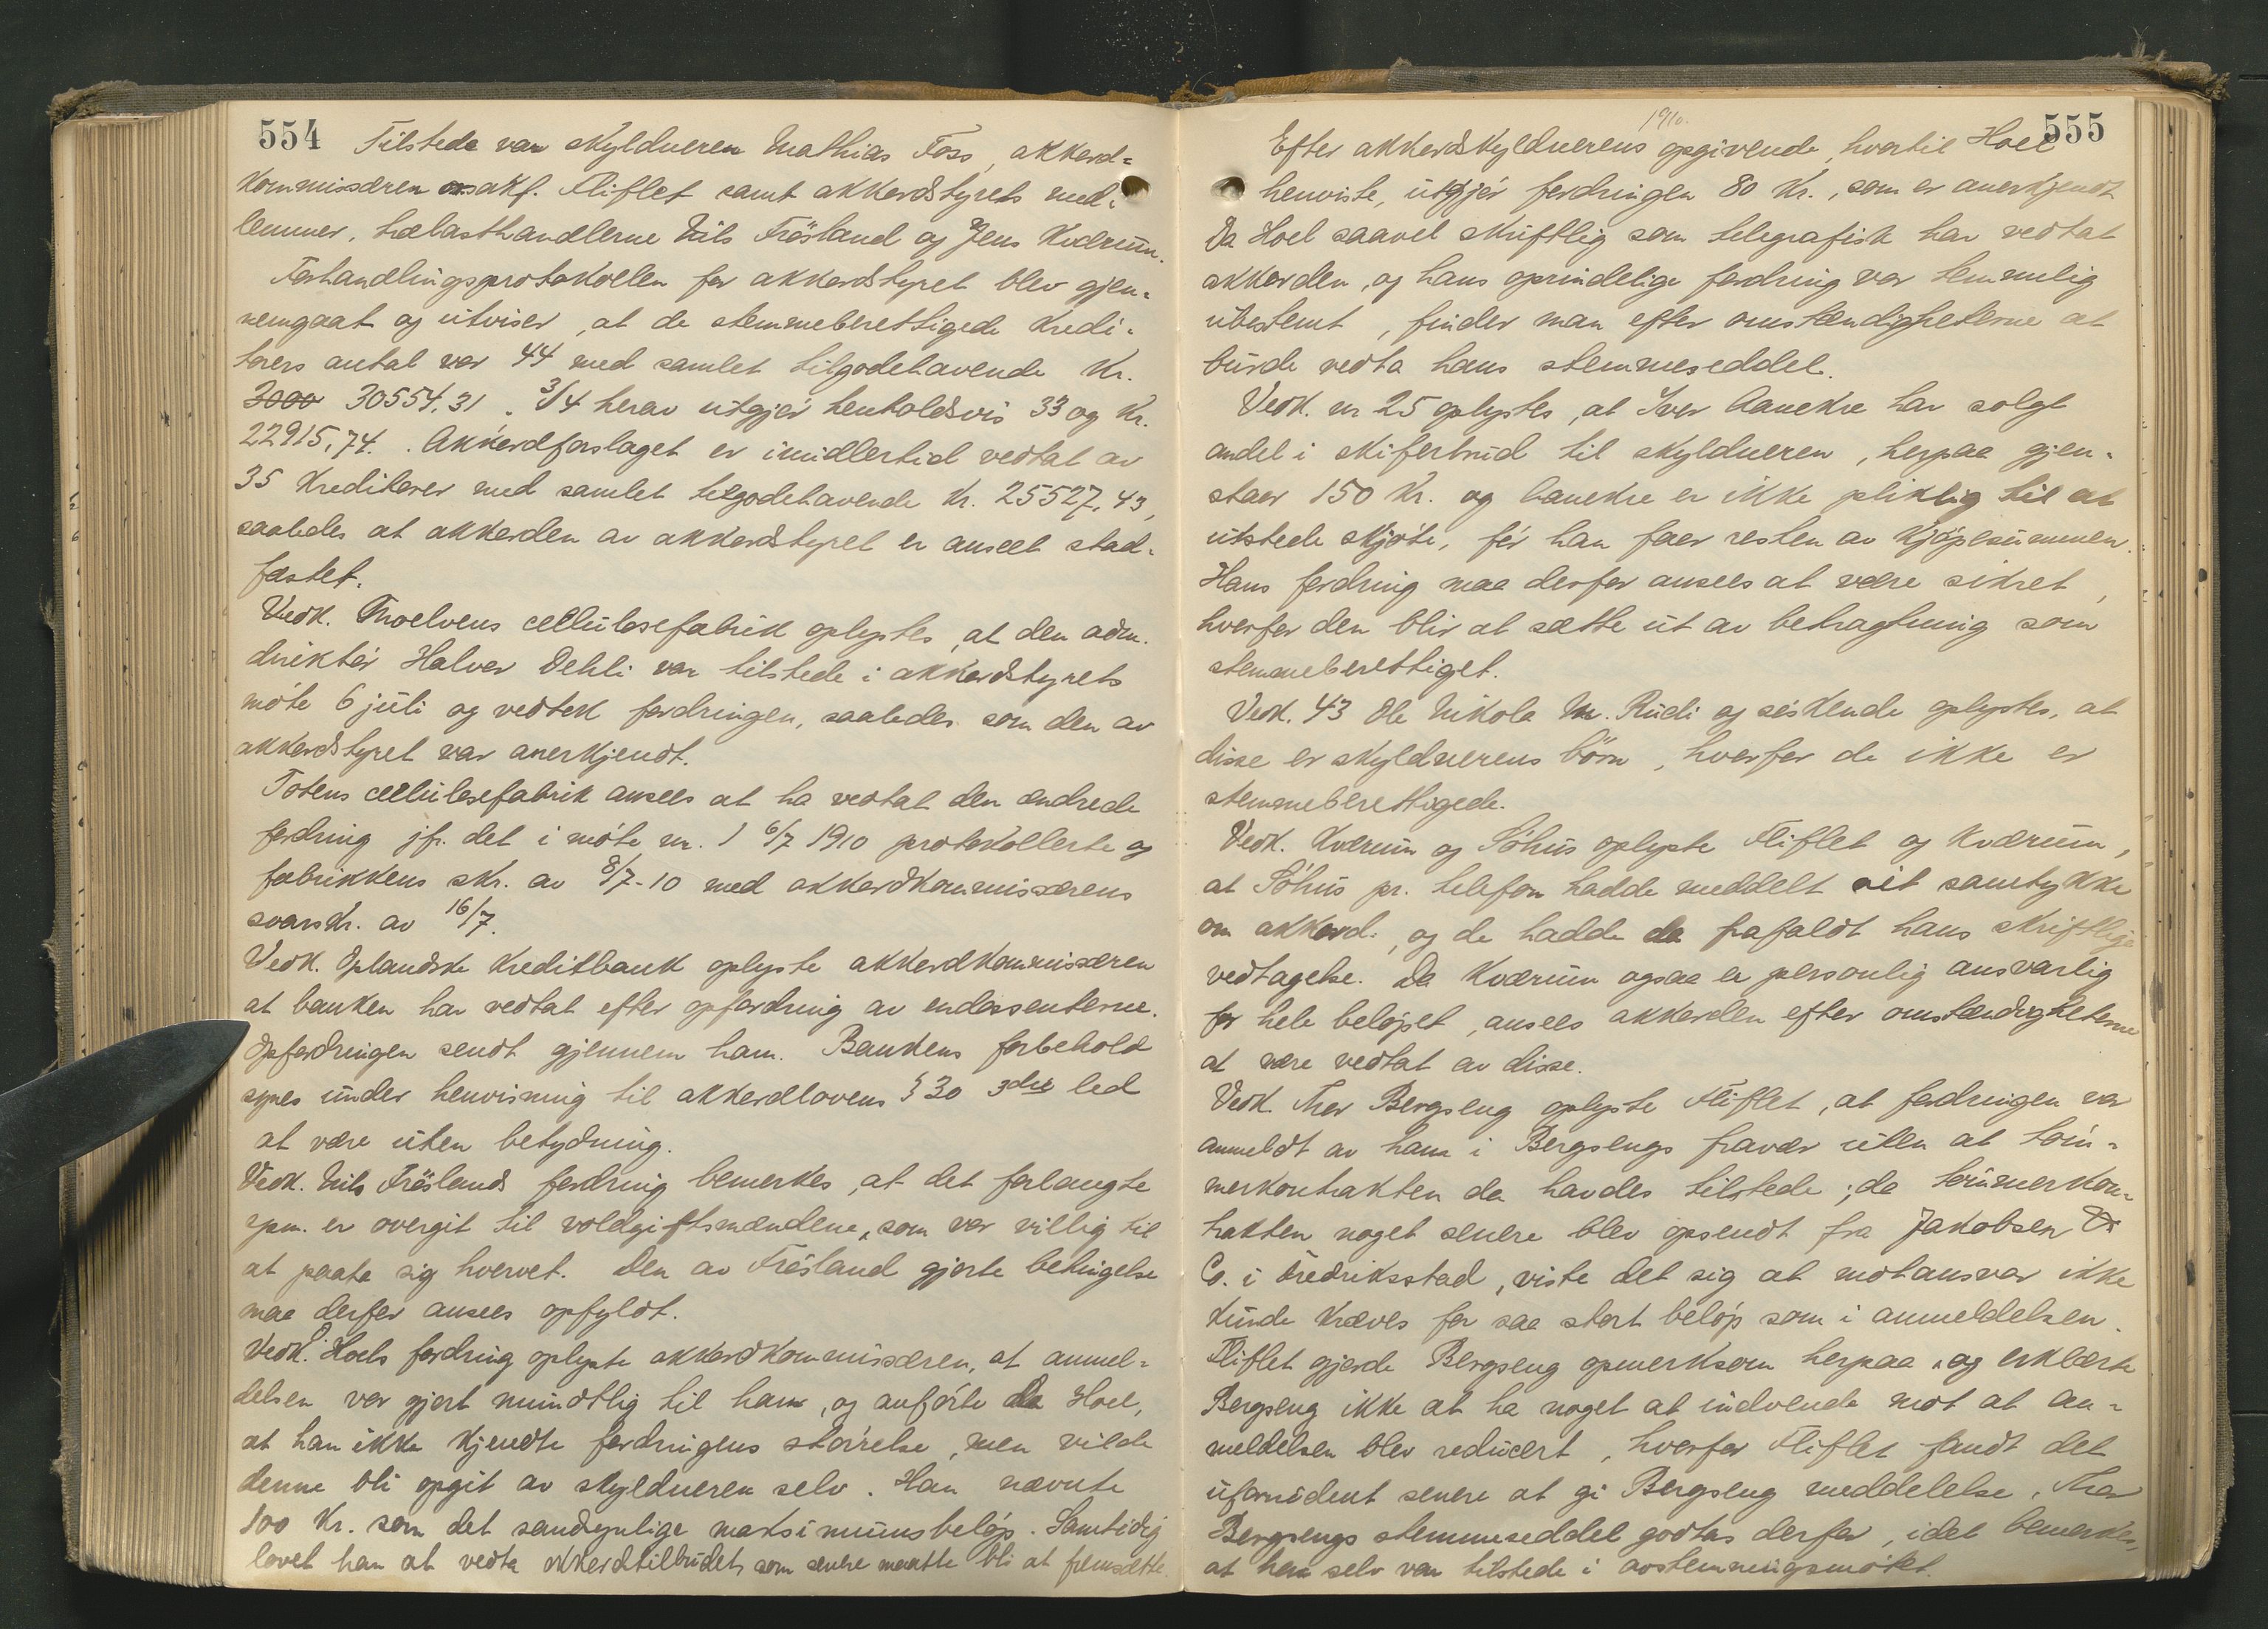 554
Tilstede var skyldneren Mathias Foss, akkord=
kommissæren o.s.akf. Fliflet samt akkordstyrets med=
lemmer, trælasthandlerne Nils Fröisland og Jens Kværum.
Forhandlingsprotokollen for akkordstyret blev gjen=
nemgaat og utviser, at de stemmeberettigede kredi=
torers antal var 44 med samlet tilgodehavende Kr.
3000 30554,31. 3/4 herav utgjør henholdsvis 33 og Kr.
22915,74. Akkordforslaget er imidlertid vedtat av
35 kreditorer med samlet tilgodehavende Kr. 25527,43,
saaledes at akkorden av akkordstyret er anseet stad=
fæstet.
Vedk. Moelvens cellulosefabrik oplystes, at den adm.
direktør Halvor Dehli var tilstede i akkordstyrets
møte 6 juli og vedtok fordringen, saaledes som den av
akkordstyret var anerkjendt.
Totens cellulosefabrik ansees at ha vedtat den ændrede
fordring jfr. det i møte nr. 1 6/7 1910 protokollerte og
fabrikkens skr. av 8/7-10 med akkordkommissærens
svarskr. av 16/7.
Vedk. Oplandske Kreditbank oplyste akkordkommissæren
at banken har vedtat efter opfordring av endossenterne.
Opfordringen sendt gjennem ham. Bankens forbehold
synes under henvisning til akkordlovens § 30 3die led
at være uten betydning.
Vedk. Nils Fröislands fordring bemerkes, at det forlangte
spm. er overgit til voldgiftsmændene, som var villig til
at paata sig hvervet. Den av Fröisland gjorte betingelse
maa derfor ansees opfyldt.
Vedk. Hoels fordring oplyste akkordkommissæren, at anmel=
delsen var gjort mundtlig til ham, og anførte da Hoel,
at han ikke kjendte fordringens størrelse, men vilde
denne bli opgit av skyldneren selv. Han nævnte
100 Kr. som det sandsynlige maksimumsbeløp. Samtidig
lovet han at vedta akkordtilbudet, som senere maatte bli at fremsætte.
1910.
555
Efter akkordskyldnerens opgivende, hvortil Hoel
henviste, utgjør fordringen 80 Kr., som er anerkjendt
Da Hoel saavel skriftlig som telegrafisk har vedtat
akkorden, og hans oprindelige fordring var temmelig
ubestemt, finder man efter omstændigheterne at
burde vedta hans stemmeseddel.
Vedk. nr 25 oplystes, at Iver Aanekre har solgt
andel i skiferbrud til skyldneren, herpaa gjen=
staar 150 Kr. og Aanekre er ikke pliktig til at
utstede skjøte, før han faar resten av kjøpesummen.
Hans fordring maa derfor ansees at være sikret,
hvorfor den blir at sætte ut av betragtning som
stemmeberettiget.
Vedk. 43 Ole Nikola M. Rudi og søskende oplystes, at
disse er skyldnerens börn, hvorfor de ikke er
stemmeberettigede.
Vedk. Kværum og Söhus oplyste Fliflet og Kværum,
at Söhus pr. telefon hadde meddelt sit samtykke
om akkord, og de hadde da frafaldt hans skriftlige
vedtagelse. Da Kværum ogsaa er personlig ansvarlig
for hele beløpet, ansees akkorden efter omstændigheterne
at være vedtat av disse.
Vedk. Thor Bergseng oplyste Fliflet, at fordringen var
anmeldt av ham i Bergsengs fravær uten at töm=
merkontrakten da havdes tilstede; da tømmerkon=
trakten noget senere blev opsendt fra Jakobsen &
Co. i Fredriksstad, viste det sig at motansvar ikke
kunde kræves for saa stort beløp som i anmeldelsen.
Fliflet gjorde Bergseng opmerksom herpaa, og erklærte
Bergseng ikke at ha noget at indvende mot at an=
meldelsen blev reducert, hvorfor Fliflet fandt det
ufornødent senere at gi Bergseng meddelelse. Thor
Bergsengs stemmeseddel godtas derfor, idet bemerkes,
at han selv var tilstede i avstemningsmøtet.